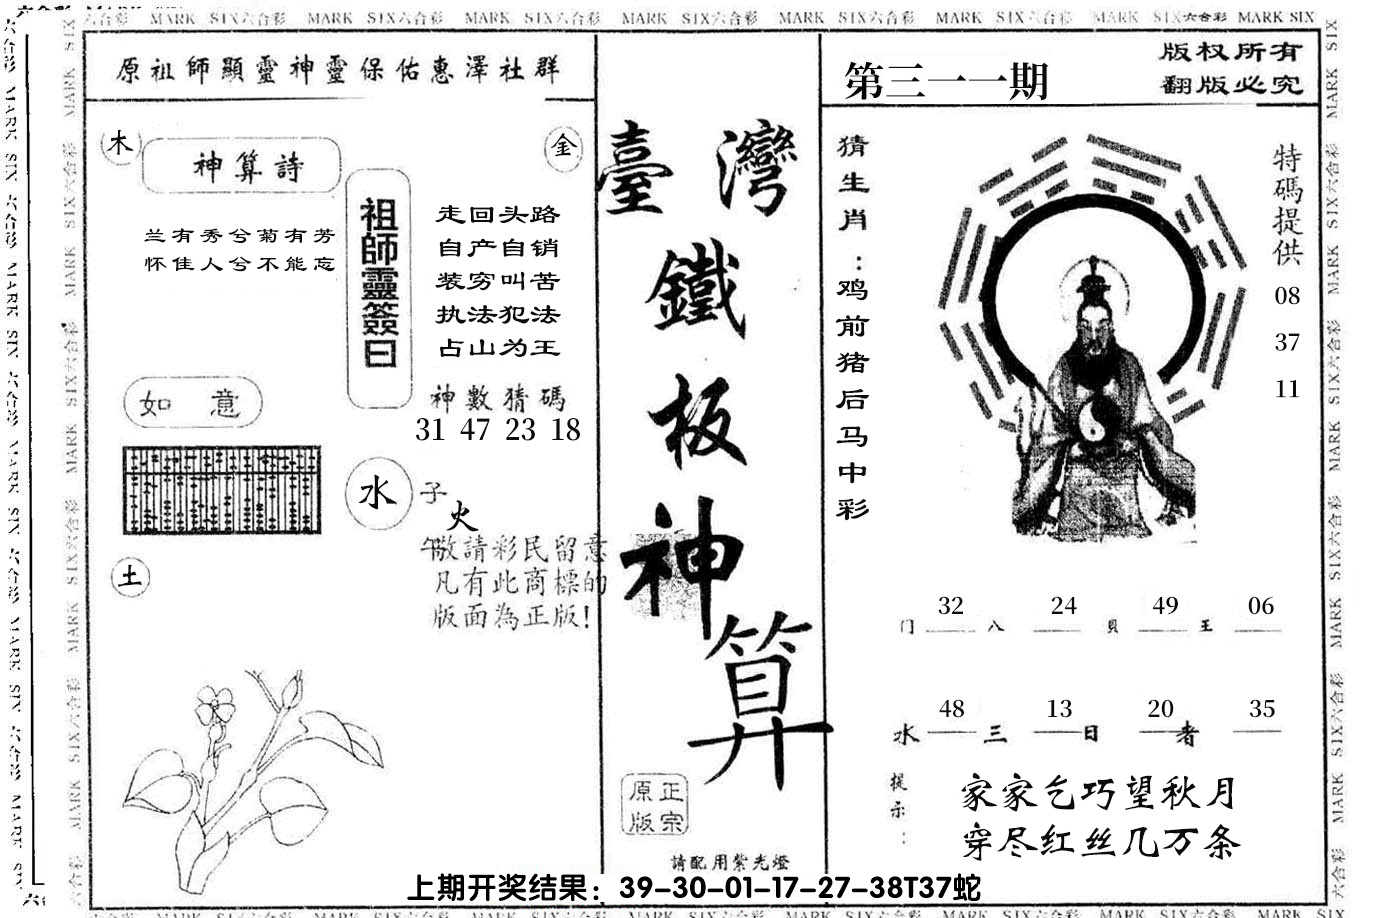 MARK SIX六合彩 MARK SIX六合彩 MARK SIX六合彩 MARK SIX六合彩 MARK SIX六合彩 MARK SIX六合彩 MARK SIX六合彩 MARK SIX
原祖師顯靈神靈保佑惠澤社群
木
金
神算詩
兰有秀兮菊有芳
怀佳人兮不能忘
祖師靈簽曰
走回头路
自产自销
装穷叫苦
执法犯法
占山为王
神數猜碼
31 47 23 18
如意
水
子
火
午
敬請彩民留意
凡有此商標的
版面為正版!
土
臺灣
鐵
板
神
算
正宗
原版
請配用紫光燈
第三一一期
版权所有
翻版必究
猜生肖:鸡前猪后马中彩
特碼提供
08
37
11
32 24 49 06
门 八 贝 王
48 13 20 35
水 三 日 者
提示:
家家乞巧望秋月
穿尽红丝几万条
上期开奖结果：39-30-01-17-27-38T37蛇